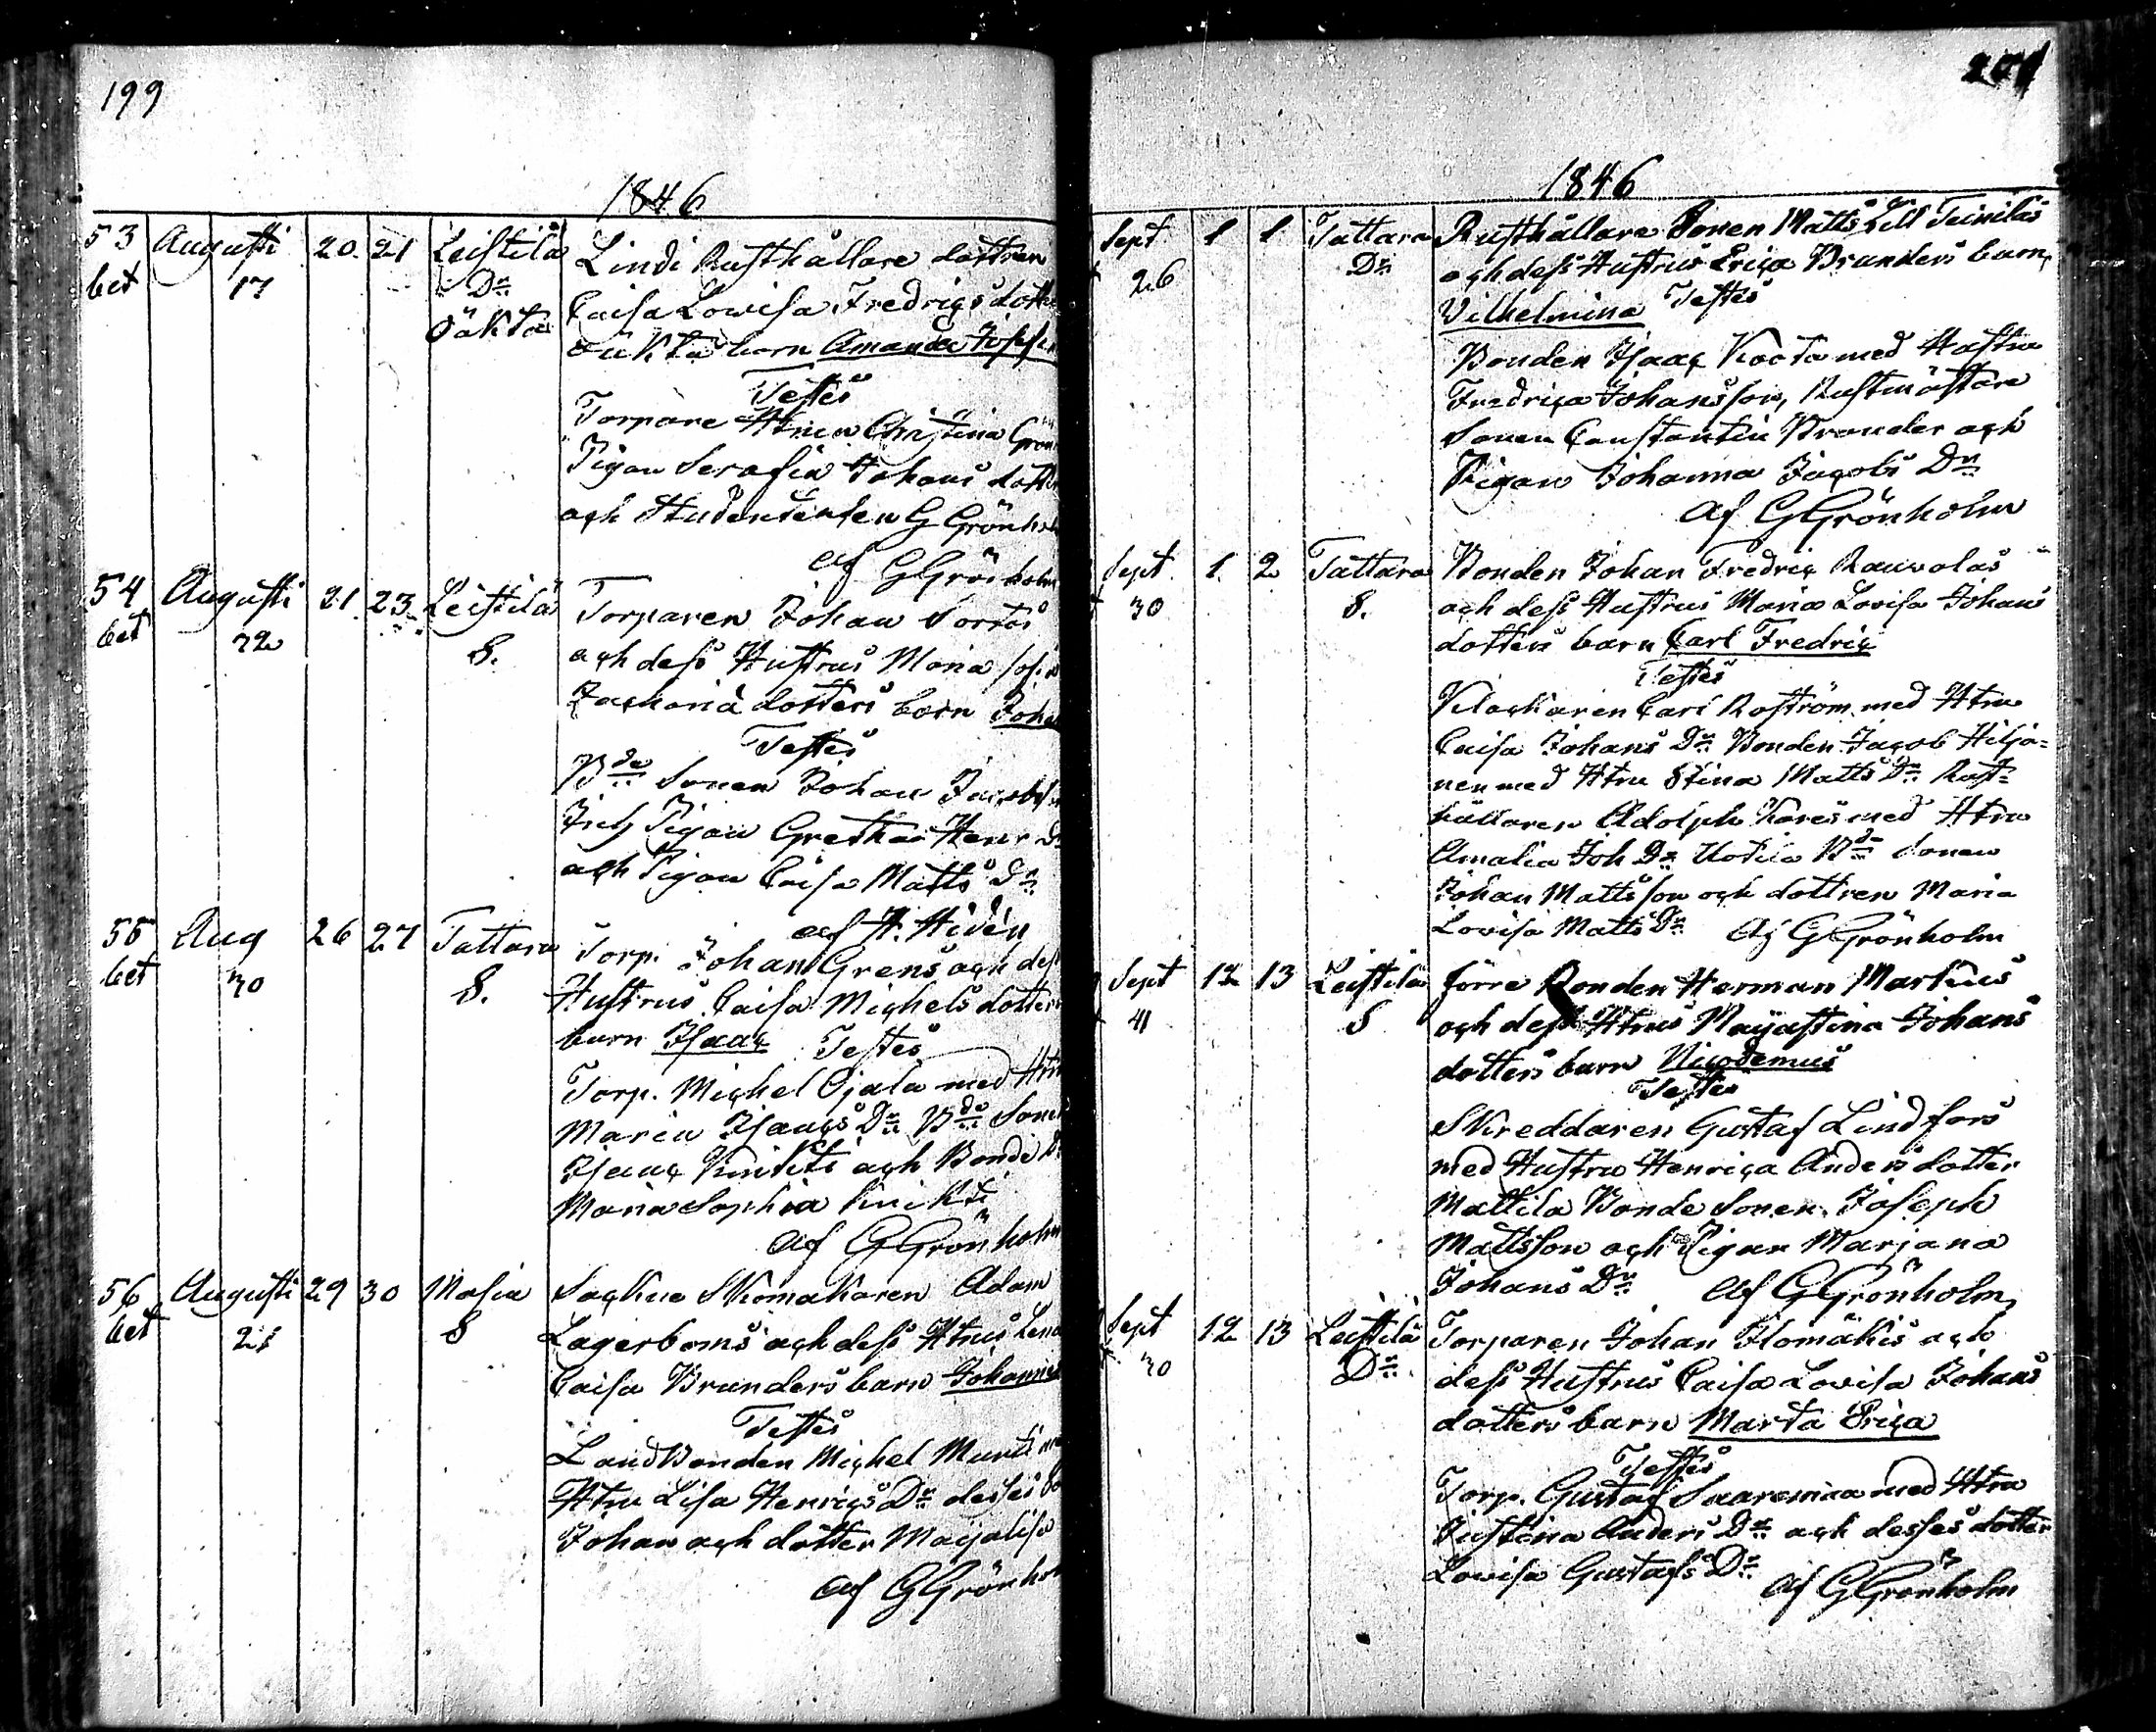 199
1846
53 Augusti 20. 21 Leistilä Lindi Rusthållare dottren
bet 17 Dr Caisa Lovisa Fredriqs dotter
oäkta oäkta barn Amanda Josefin
Testes
Torpare Htrun Christina Grön
Pigan Serafia Johans dotter
och Studentensen G Grönholm
af G Grönholm
54 Augusti 21. 23. Leistilä Torparen Johan Sorras
bet S. och dess Hustrus Maria Sofia
Zachariä dotters barn Johan
Testes
Bde Sonen Johan Jacobs
Pigan Gretha Henr Dr
och Pigan Caisa Matts Dr
af H. Hidén
55 Aug 26 27 Tattara Torp. Johan Grens och dess
bet 30 S. Hustrus Caisa Michels dotters
barn Isaac Testes
Torp. Michel Ojala med Htru
Maria Isaacs Dr Bde Sonen
Isaac Knikti och Bonde
Maria Sophia Knikti
af G Grönholm
56 Augusti 29 30 Masia Sockne Skomakaren Adam
bet 21 S Lagerboms och dess Htrus Lena
Caisa Branders barn Johannes
Testes
Landbonden Michel Murti
Htru Lisa Henriqs Dr desses
Johan och dotter Majalisa
af G Grönholm
201
1846
Sept 1 1 Tattara Rusthållare Sonen Matts Lill Teiniläs
26 Dr och dess Hustrus Erica Branders barn
Vilhelmina Testes
Bonden Isaac Koota med Hustru
Fredrica Johansson, Rustmästare
Sonen Constantin Brander och
Pigan Johanna Jacobs Dr
af G Grönholm
Sept. 1. 2 Tattara Bonden Johan Fredric Rauvolas
30 S. och dess Hustrus Maria Lovisa Johans
dotters barn Carl Fredric
Testes
Klockaren Carl Roström med Htru
Caisa Johans Dr Bonden Jacob Hilja=
nen med Htru Stina Matts Dr Rust=
hållaren Adolph Kares med Htru
Amalia Joh Dr Uotila Bde Sonen
Johan Mattsson och dottren Maria
Lovisa Matts Dr Af G Grönholm
Sept 12 13 Leistilä förre Bonden Herman Markus
41 S och dess Htrus Majastina Johans
dotters barn Nicodemus
Testes
Skreddaren Gustaf Lindfors
med Hustru Henrica Anders dotter
Mattila Bonde Sonen Joseph
Mattsson och Pigan Marjana
Johans Dr Af G Grönholm
Sept 12 13 Leistilä Torparen Johan Ilomäkis och
30 Dr dess Hustrus Caisa Lovisa Johans
dotters barn Marta Erica
Testes
Torp. Gustaf Saaremaa med Htru
Justina Anders Dr och desses dotter
Lovisa Gustafs Dr Af G Grönholm